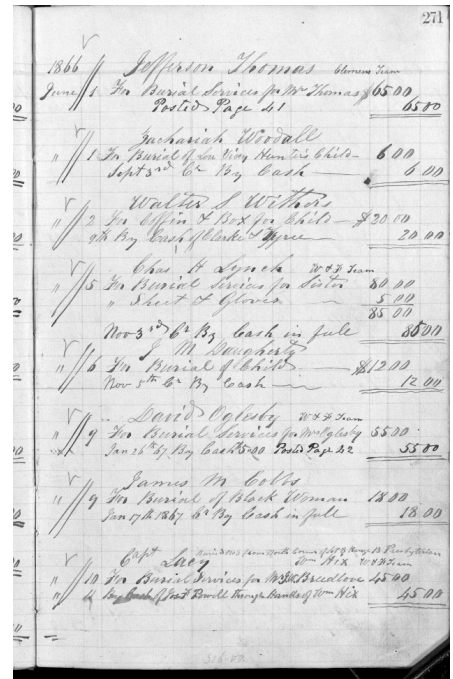 271
1866 Jefferson Thomas Clemens Team
June 1 For Burial Services for Mr Thomas $65 00
Posted Page 41 65 00
Zachariah Woodall
" 1 For Burial of Hunter's Child 6 00
Sept 3rd Cr By Cash 6 00
Walter S Withers
" 2 For Coffin & Box for Child $20 00
9th By Cash of Clarke & Tyree 20 00
Chas H Lynch W & H Team
" 5 For Burial Services for Sister 80 00
" Sheet & Gloves 5 00
85 00
Nov 3rd Cr By Cash in full 85 00
J M Daugherty
" 6 For Burial of Child $12 00
Nov 5th Cr By Cash 12 00
David Oglesby W & H Team
" 9 For Burial Services for Mrs Oglesby 55 00
Jan 26th 67 By Cash 5 00 Posted Page 42 55 00
James M Cobbs
" 9 For Burial of Black Woman 18 00
Jan 17th 1867 Cr By Cash in full 18 00
from North Corner of Range 13 Presbyterian
Capt Lacy Wm Hix W & H Team
" 10 For Burial Services for Breedlove 45 00
" of Powell through hands of Wm Hix 45 00
316.00